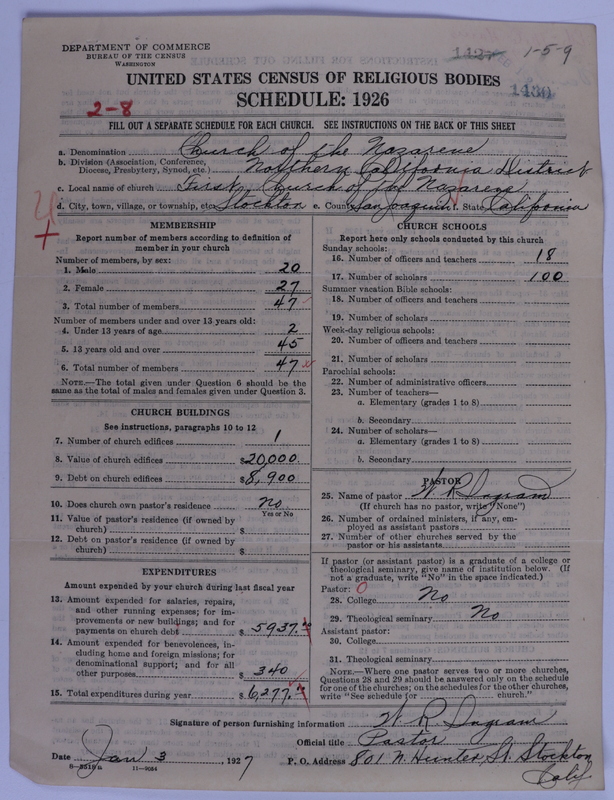 DEPARTMENT OF COMMERCE
BUREAU OF THE CENSUS
WASHINGTON
1-5-9
UNITED STATES CENSUS OF RELIGIOUS BODIES
SCHEDULE: 1926
1430
2-8
FILL OUT A SEPARATE SCHEDULE FOR EACH CHURCH. SEE INSTRUCTIONS ON THE BACK OF THIS SHEET
a. Denomination Church of the Nazarene
b. Division (Association, Conference, Diocese, Presbytery, Synod, etc.) Northern California District
c. Local name of church First Church of the Nazarene
d. City, town, village, or township, etc. Stockton e. County San Joaquin f. State California
MEMBERSHIP
Report number of members according to definition of
member in your church
Number of members, by sex:
1. Male 20
2. Female 27
3. Total number of members 47
Number of members under and over 13 years old:
4. Under 13 years of age 2
5. 13 years old and over 45
6. Total number of members 47
NOTE.—The total given under Question 6 should be the
same as the total of males and females given under Question 3.
CHURCH BUILDINGS
See instructions, paragraphs 10 to 12
7. Number of church edifices 1
8. Value of church edifices $20,000.
9. Debt on church edifices $8,900
10. Does church own pastor's residence No
Yes or No
11. Value of pastor's residence (if owned by
church) $
12. Debt on pastor's residence (if owned by
church) $
EXPENDITURES
Amount expended by your church during last fiscal year
13. Amount expended for salaries, repairs,
and other running expenses; for im-
provements or new buildings; and for
payments on church debt $5937.
14. Amount expended for benevolences, in-
cluding home and foreign missions; for
denominational support; and for all
other purposes $340
15. Total expenditures during year $6,277.
CHURCH SCHOOLS
Report here only schools conducted by this church
Sunday schools:
16. Number of officers and teachers 18
17. Number of scholars 100
Summer vacation Bible schools:
18. Number of officers and teachers
19. Number of scholars
Week-day religious schools:
20. Number of officers and teachers
21. Number of scholars
Parochial schools:
22. Number of administrative officers
23. Number of teachers—
a. Elementary (grades 1 to 8)
b. Secondary
24. Number of scholars—
a. Elementary (grades 1 to 8)
b. Secondary
PASTOR
25. Name of pastor W R Ingram
(If church has no pastor, write "None")
26. Number of ordained ministers, if any, em-
ployed as assistant pastors
27. Number of other churches served by the
pastor or his assistants
If pastor (or assistant pastor) is a graduate of a college or
theological seminary, give name of institution below. (If
not a graduate, write "No" in the space indicated.)
Pastor:
28. College No
29. Theological seminary No
Assistant pastor:
30. College
31. Theological seminary
NOTE.—Where one pastor serves two or more churches,
Questions 28 and 29 should be answered only on the schedule
for one of the churches; on the schedules for the other churches,
write "See schedule for church."
Signature of person furnishing information W. R. Ingram
Official title Pastor
Date Jan 3, 1927 P. O. Address 801 N. Hunter, St. Stockton
Calif
8—5518a 11—9084